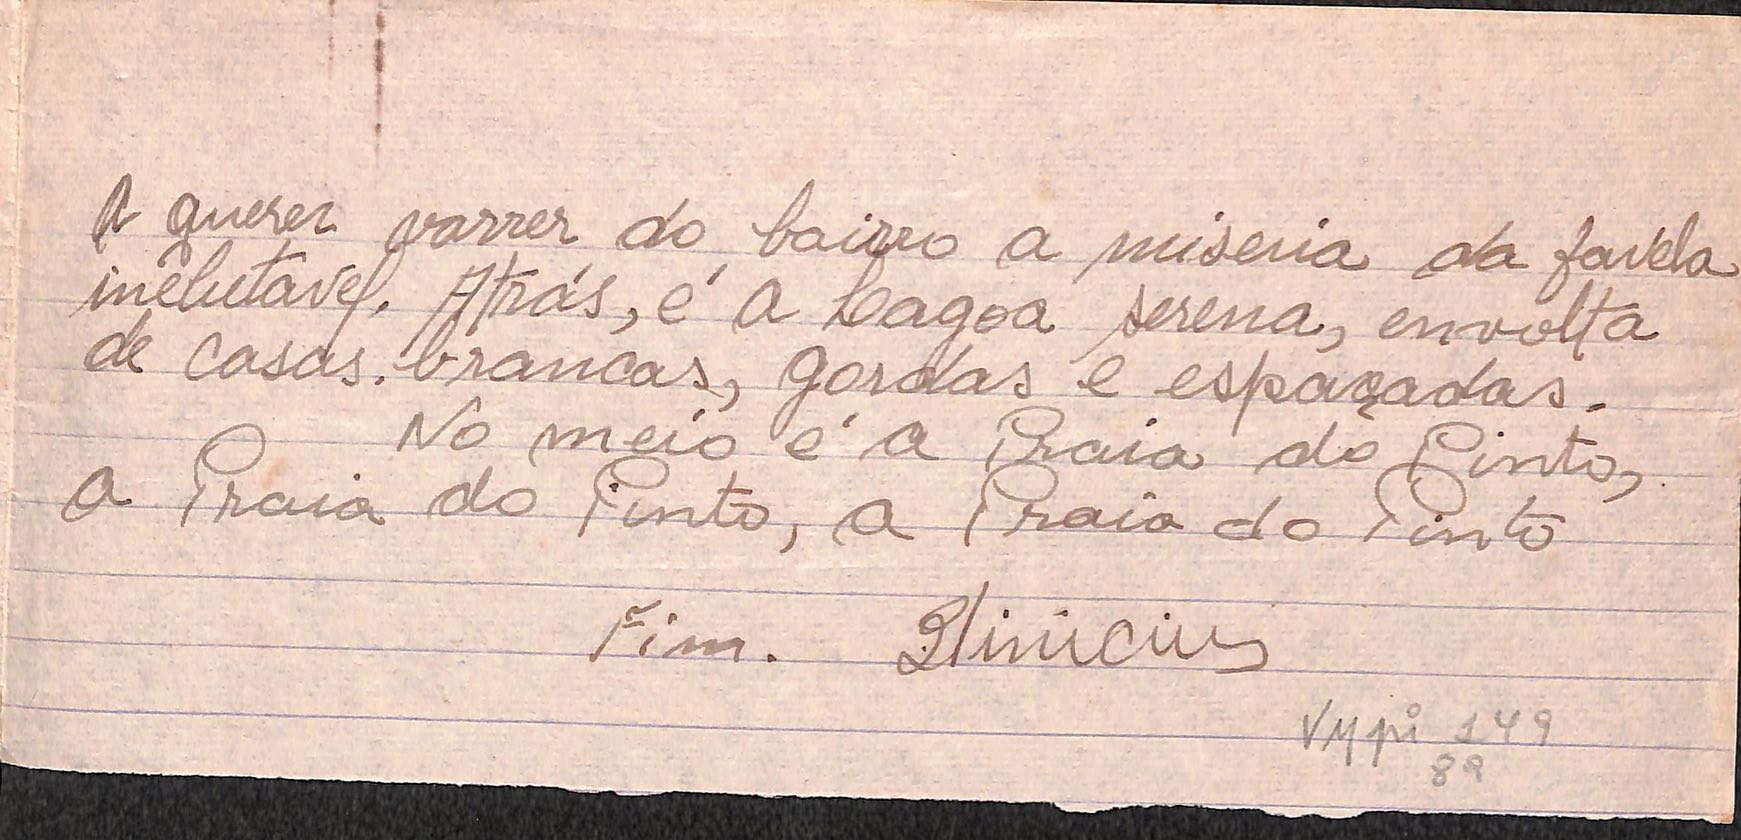 A querer varrer do bairro a miseria da favela
inelutavel. Atrás, é a Lagoa serena, envolta
de casas brancas, gordas e espaçadas.
No meio é a Praia do Pinto,
a Praia do Pinto, a Praia do Pinto
Fim. Vinicius
VMpi 149
89